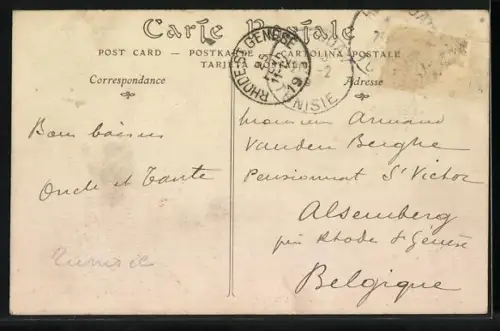 Carte Postale
POST CARD — POSTKARTE — CARTOLINA POSTALE
TARJE
Correspondance
Adresse
RHODE-ST GENESE
19
TUNISIE
Bons baisers
Oncle et Tante
Tunisie
Monsieur Armand
Vanden Berghe
Pensionnat St Victor
Alsemberg
près Rhode St Genèse
Belgique